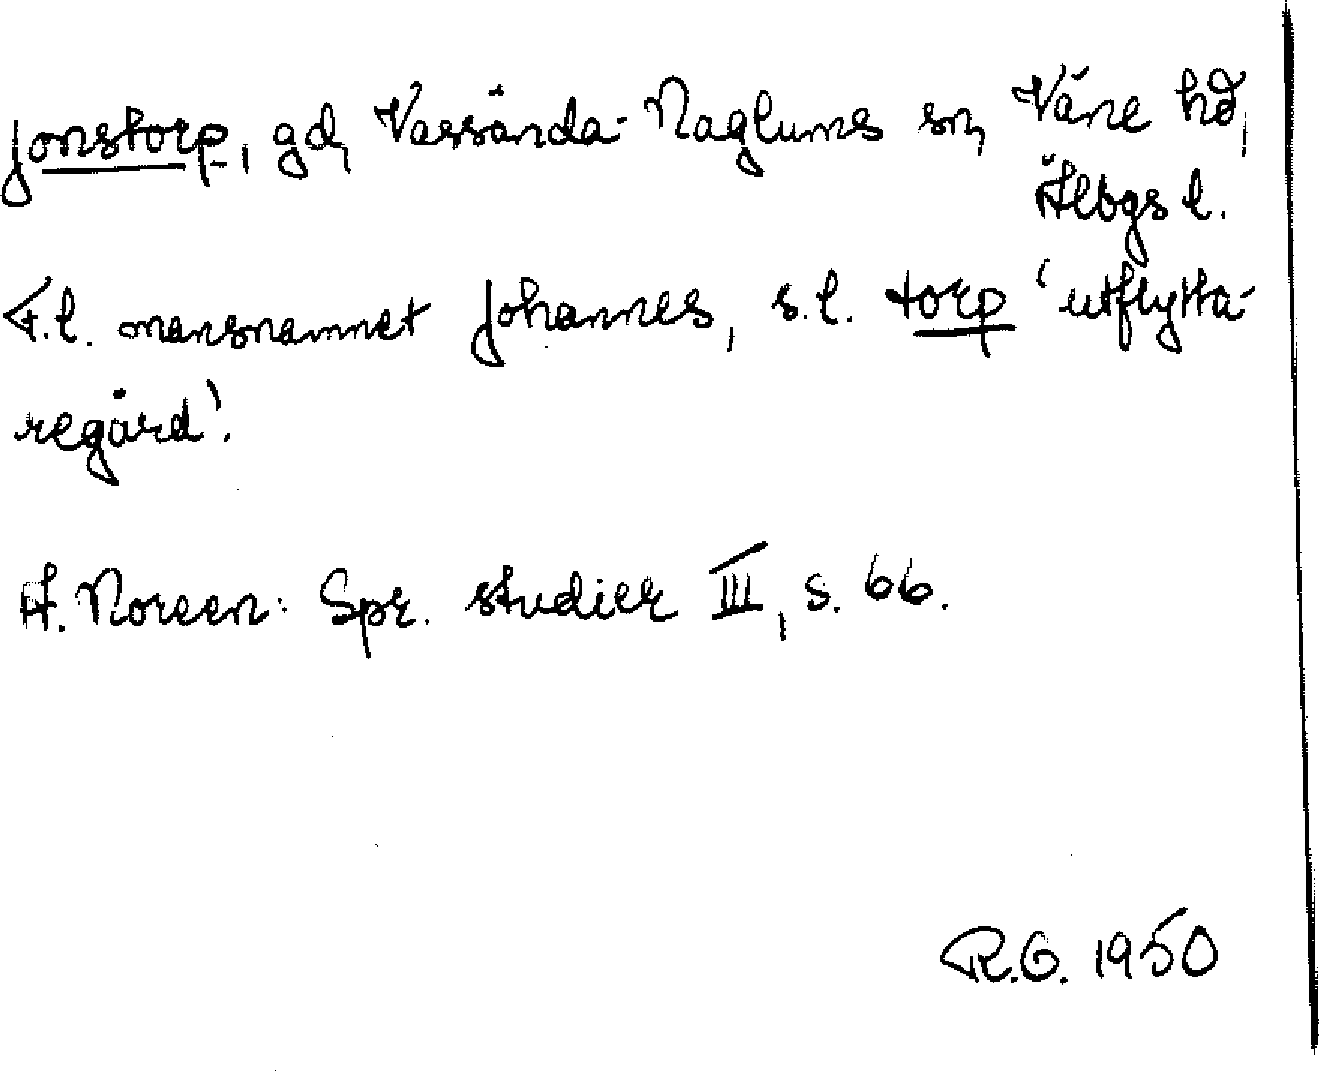 Jonstorp, gd, Vassända-Naglums sn, Väne hd,
Älvbgs l.
F.l. mansnamnet Johannes, s.l. torp 'utflytta-
regård'.
A. Noreen: Spr. studier III, s. 66.
R.G. 1950